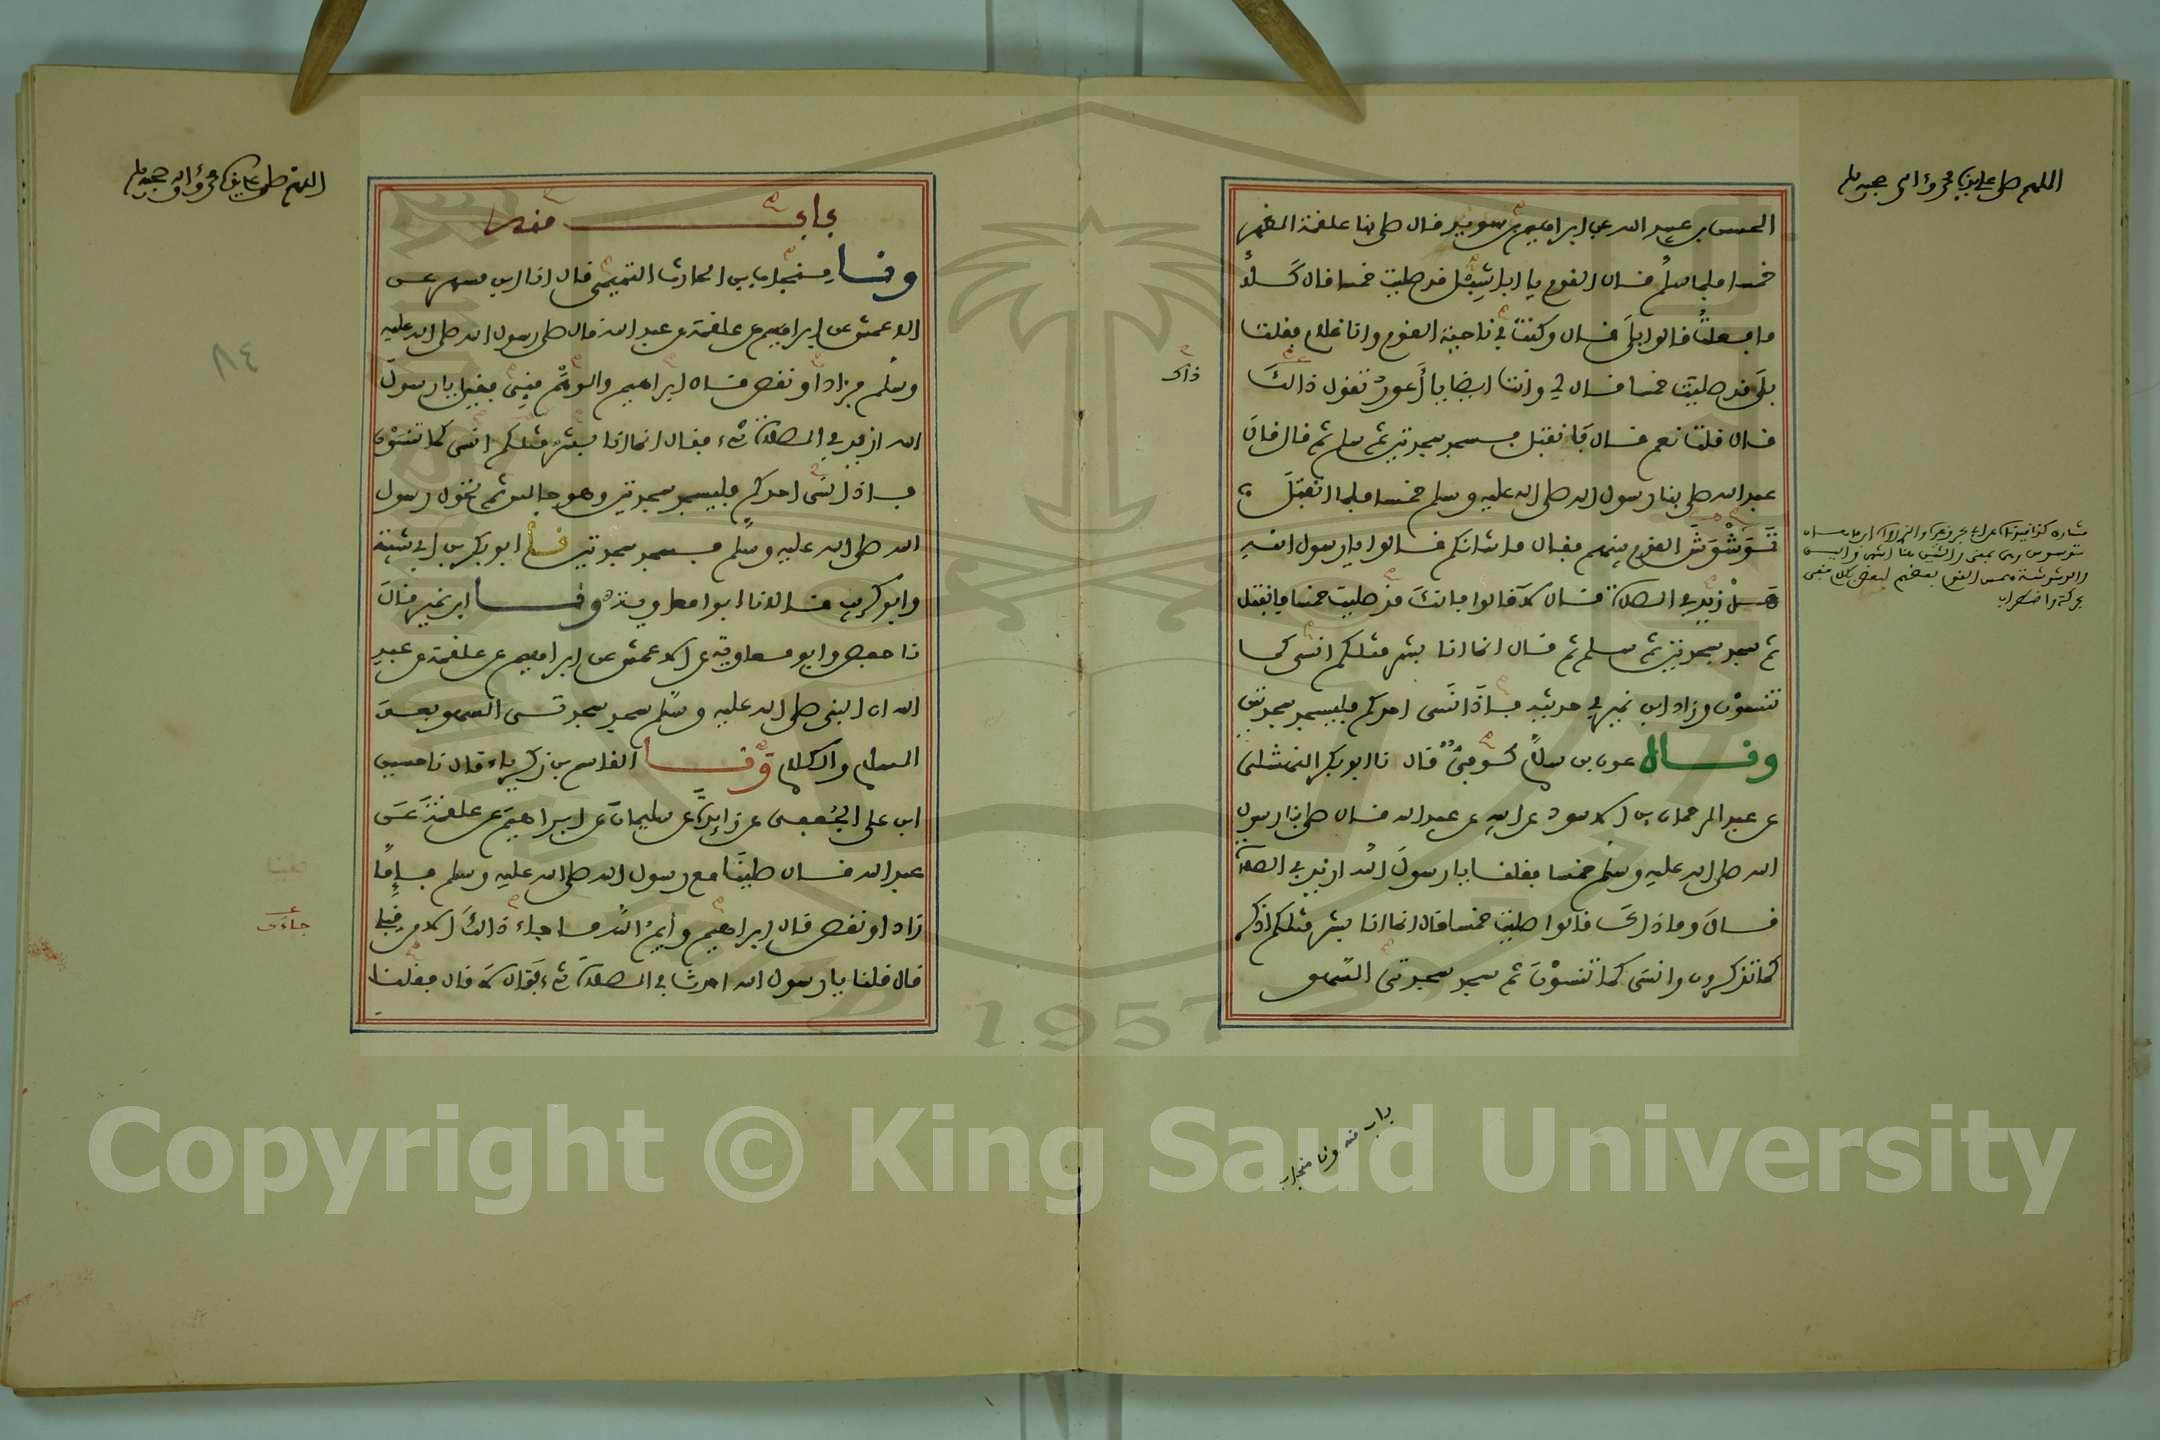 اللهم صل على سيدنا محمد وءاله وصحبه وسلم
الحسن بن عبيد الله عن ابراهيم بن سويد قال صلى بنا علقمة الظهر
خمسا فلما سلم قال القوم يا ابا شبل قد صليت خمسا قال كلا
ما فعلت قالوا بلى قال وكنت في ناحية القوم وانا غلام فقلت
بلى قد صليت خمسا قال لي وانت ايضا يا أعور تقول ذالك
ذاك
قال قلت نعم قال فانفتل فسجد سجدتين ثم سلم ثم قال قال
عبد الله صلى بنا رسول الله صلى الله عليه وسلم خمسا فلما انفتل
توشوش القوم بينهم فقال ما شانكم قالوا يا رسول الله
هل زيد في الصلاة قال لا قالوا فانك قد صليت خمسا فانفتل
ثم سجد سجدتين ثم سلم ثم قال انما انا بشر مثلكم انسى كما
تنسون وزاد ابن نمير في حديثه فاذا نسى احدكم فليسجد سجدتين
وفال عون بن سلام كوفي قال نا ابو بكر النهشلي
عن عبد الرحمان بن الاسود عن ابيه عن عبد الله قال صلى بنا رسول
الله صلى الله عليه وسلم خمسا فقلنا يا رسول الله ازيد في الصلاة
قال وما ذاك قالوا صليت خمسا قال انما انا بشر مثلكم اذكر
كما تذكرون وانسى كما تنسون ثم سجد سجدتى السهو
باب منه ونا منجاب
اللهم صل على سيدنا محمد وءاله وصحبه وسلم
باب منه
ونا منجاب بن الحارث التميمي قال انا ابن مسهر عن
الاعمش عن ابراهيم عن علقمة عن عبد الله قال صلى رسول الله صلى الله عليه
وسلم فزاد او نقص قال ابراهيم والوهم مني فقيل يا رسول
الله ازيد في الصلاة شيء فقال انما انا بشر مثلكم انسى كما تنسون
فاذا نسى احدكم فليسجد سجدتين وهو جالس ثم تحول رسول
الله صلى الله عليه وسلم فسجد سجدتين نا ابو بكر بن ابي شيبة
وابو كريب قالا نا ابو معاوية ونا ابن نمير قال
نا حفص وابو معاوية عن الاعمش عن ابراهيم عن علقمة عن عبد
الله ان النبي صلى الله عليه وسلم سجد سجدتى السهو بعد
السلام والكلام ونا القاسم بن زكرياء قال نا حسين
ابن على الجعفى عن زايدة عن سليمان عن ابراهيم عن علقمة عن
عبد الله قال صلينا مع رسول الله صلى الله عليه وسلم فإما
زاد او نقص قال ابراهيم وأيم الله ما جاء ذالك الا من قبلي
جاء
قال قلنا يا رسول الله احدث في الصلاة شيء فقال لا قال فقلنا
٨٤
1957
Copyright © King Saud University